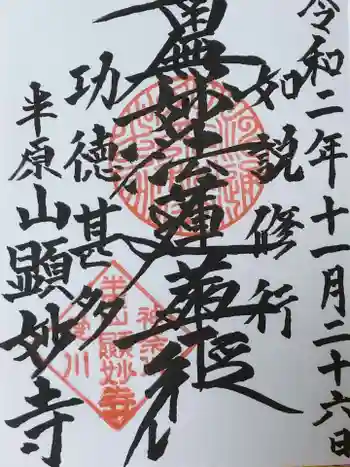 令和二年十一月二十六日
如説修行
南無妙法蓮華経
功徳甚多
半原山顕妙寺
神奈川
顕妙寺